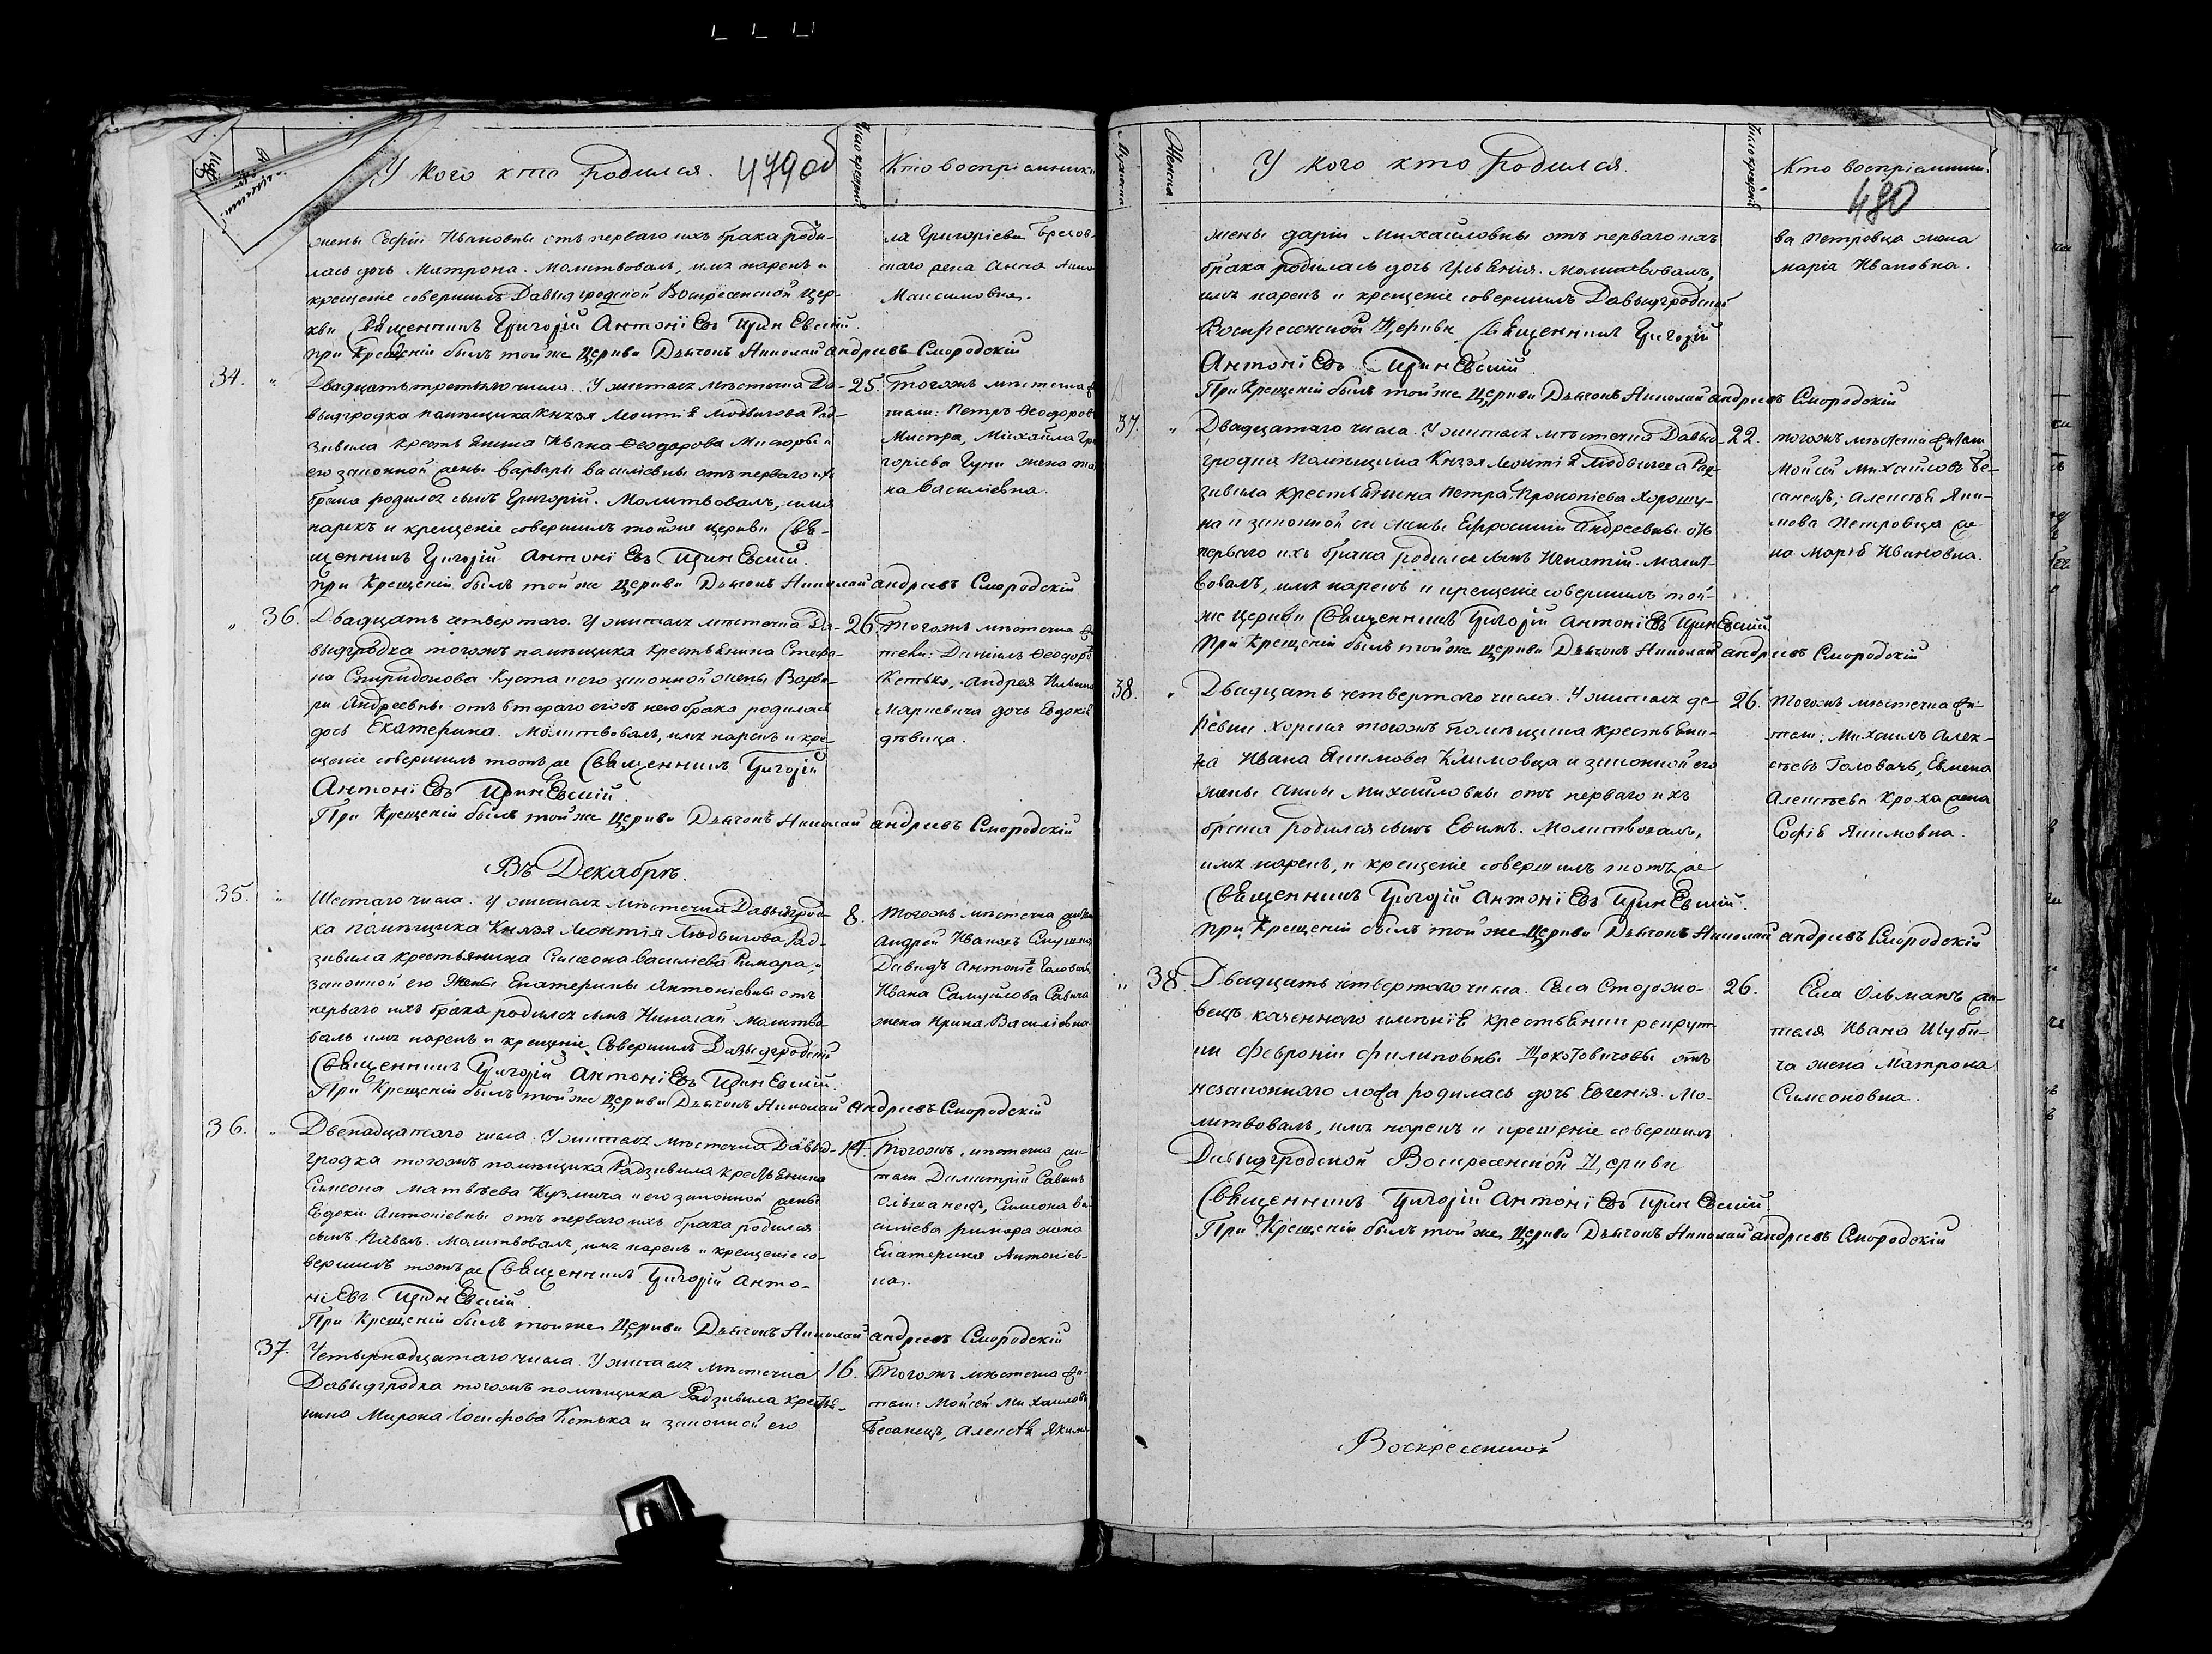 У кого кто родился.
479об
Число крещенія
Кто воспріемники
жены Софіи Ивановны отъ перваго ихъ брака роди-
лась дочь Матрона. Молитвовалъ, имя нарекъ и
крещеніе совершилъ Давыдгродской Воскресенской Цер-
кви Священникъ Григорій Антоніевъ
При Крещеніи былъ той же Церкви Дьячокъ Николай Андреевъ Смородскій
ла Григоріева
жена Анна
Максимовна.
34.
Двадцать третьяго числа. У жителя мѣстечка Да-
выдгродка помѣщика Князя Леонтія Людвигова Рад-
зивила крестьянина Ивана Ѳеодорова Мисюры и
его законной жены Варвары Василіевны отъ перваго ихъ
брака родился сынъ Григорій. Молитвовалъ, имя
нарекъ и крещеніе совершилъ тойже церкви Свя-
щенникъ Григорій Антоніевъ
При Крещеніи былъ той же Церкви Дьячокъ Николай Андреевъ Смородскій
25.
Тогожъ мѣстечка жи-
тели: Петръ Ѳеодоровъ
Михайла Гри-
горіева жена
Василіевна.
36.
Двадцать четвертаго. У жителя мѣстечка Да-
выдгродка тогожъ помѣщика крестьянина Стефа-
на Спиридонова Куста и его законной жены Варва-
ры Андреевны отъ втораго его съ нею брака родилась
дочь Екатерина. Молитвовалъ, имя нарекъ и кре-
щеніе совершилъ тотъ же Священникъ Григорій
Антоніевъ
При Крещеніи былъ той же Церкви Дьячокъ Николай Андреевъ Смородскій
26.
Тогожъ мѣстечка жи-
тели: Даніилъ Ѳеодоровъ
Кетько, Андрея
Маркевича дочь Евдокія
дѣвица.
Въ Декабрѣ.
35.
Шестаго числа. У жителя мѣстечка Давыдгрод-
ка помѣщика Князя Леонтія Людвигова Рад-
зивила крестьянина Симеона Василіева Римара, и
законной его жены Екатерины Антоніевны отъ
перваго ихъ брака родился сынъ Николай. Молитво-
валъ имя нарекъ и крещеніе Совершилъ Давыдгродскій
Священникъ Григорій Антоніевъ
При Крещеніи былъ той же Церкви Дьячокъ Николай Андреевъ Смородскій
8.
Тогожъ мѣстечка жители
Андрей Ивановъ
Давидъ Антоніевъ Головачъ
Ивана Самуйлова Савича
жена Ирина Василіовна
36.
Двенадцатаго числа. У жителя мѣстечка Давыд-
гродка тогожъ помѣщика Радзивила крестьянина
Симеона Матвѣева Кузмича и его законной жены
Евдокіи Антоніевны отъ перваго ихъ брака родился
сынъ Павелъ. Молитвовалъ, имя нарекъ и крещеніе со-
вершилъ тотъ же Священникъ Григорій Анто-
ніевъ
При Крещеніи былъ той же Церкви Дьячокъ Николай Андреевъ Смородскій
14.
Тогожъ мѣстечка жи-
тели Димитрій Савинъ
Ольманецъ, Симеона Ва-
силіева Римара жена
Екатерина Антоніев-
на.
37.
Четырнадцатаго числа. У жителя мѣстечка
Давыдгродка тогожъ помѣщика Радзивила крестья-
нина Мирона Іосифова Кетька и законной его
16.
Тогожъ мѣстечка жи-
тели: Мойсей Михаиловъ
Бесанецъ, Алексѣя Якимо-
Мужеска
Женска
У кого кто родился.
Число крещенія
Кто воспріемники
480
жены Даріи Михайловны отъ перваго ихъ
брака родилась дочь Молитвовалъ,
имя нарекъ и крещеніе совершилъ Давыдгродской
Воскресенской Церкви Священникъ Григорій
Антоніевъ
При Крещеніи былъ той же Церкви Дьячокъ Николай Андреевъ Смородскій
ва Петровца жена
Марія Ивановна.
37.
Двадцатаго числа. У жителя мѣстечка Давыд-
гродка Помѣщика Князя Леонтія Людвигова Рад-
зивила крестьянина Петра Прокопіева Хорошу-
на и законной его жены Ефросиніи Андреевны отъ
перваго ихъ брака родился сынъ Игнатій. Молит-
вовалъ, имя нарекъ и крещеніе совершилъ той-
же церкви Священникъ Григорій Антоніевъ
При Крещеніи былъ той же Церкви Дьячокъ Николай Андреевъ Смородскій
22.
тогожъ мѣстечка жители
Мойсей Михайловъ Бе-
санецъ; Алексѣя Яки-
мова Петровца же-
на Марія Ивановна.
38.
Двадцать четвертаго числа. У жителя де-
ревни Хорска тогожъ помѣщика крестьяни-
на Ивана Якимова Климовца и законной его
жены Анны Михайловны отъ перваго ихъ
брака родился сынъ Евѳимъ. Молитвовалъ,
имя нарекъ, и крещеніе совершилъ тотъ же
Священникъ Григорій Антоніевъ
При Крещеніи былъ той же Церкви Дьячокъ Николай Андреевъ Смородскій
26.
Тогожъ мѣстечка жи-
тели: Михаилъ Алек-
сѣевъ Головачъ, Евмена
Алексѣева Кроха жена
Софія Якимовна.
38.
Двадцать четвертаго числа. Села Столжо-
вецъ казеннаго имѣнія крестьянки рекрут-
ки Февроніи Филиповны Щокотовичовы отъ
незаконнаго ложа родилась дочь Евгенія. Мо-
литвовалъ, имя нарекъ и крещеніе совершилъ
Давыдгродской Воскресенской Церкви
Священникъ Григорій Антоніевъ
При Крещеніи былъ той же Церкви Дьячокъ Николай Андреевъ Смородскій
26.
Села Ольманъ жи-
теля Ивана Шуби-
ча жена Матрона
Симеоновна.
Воскресенской